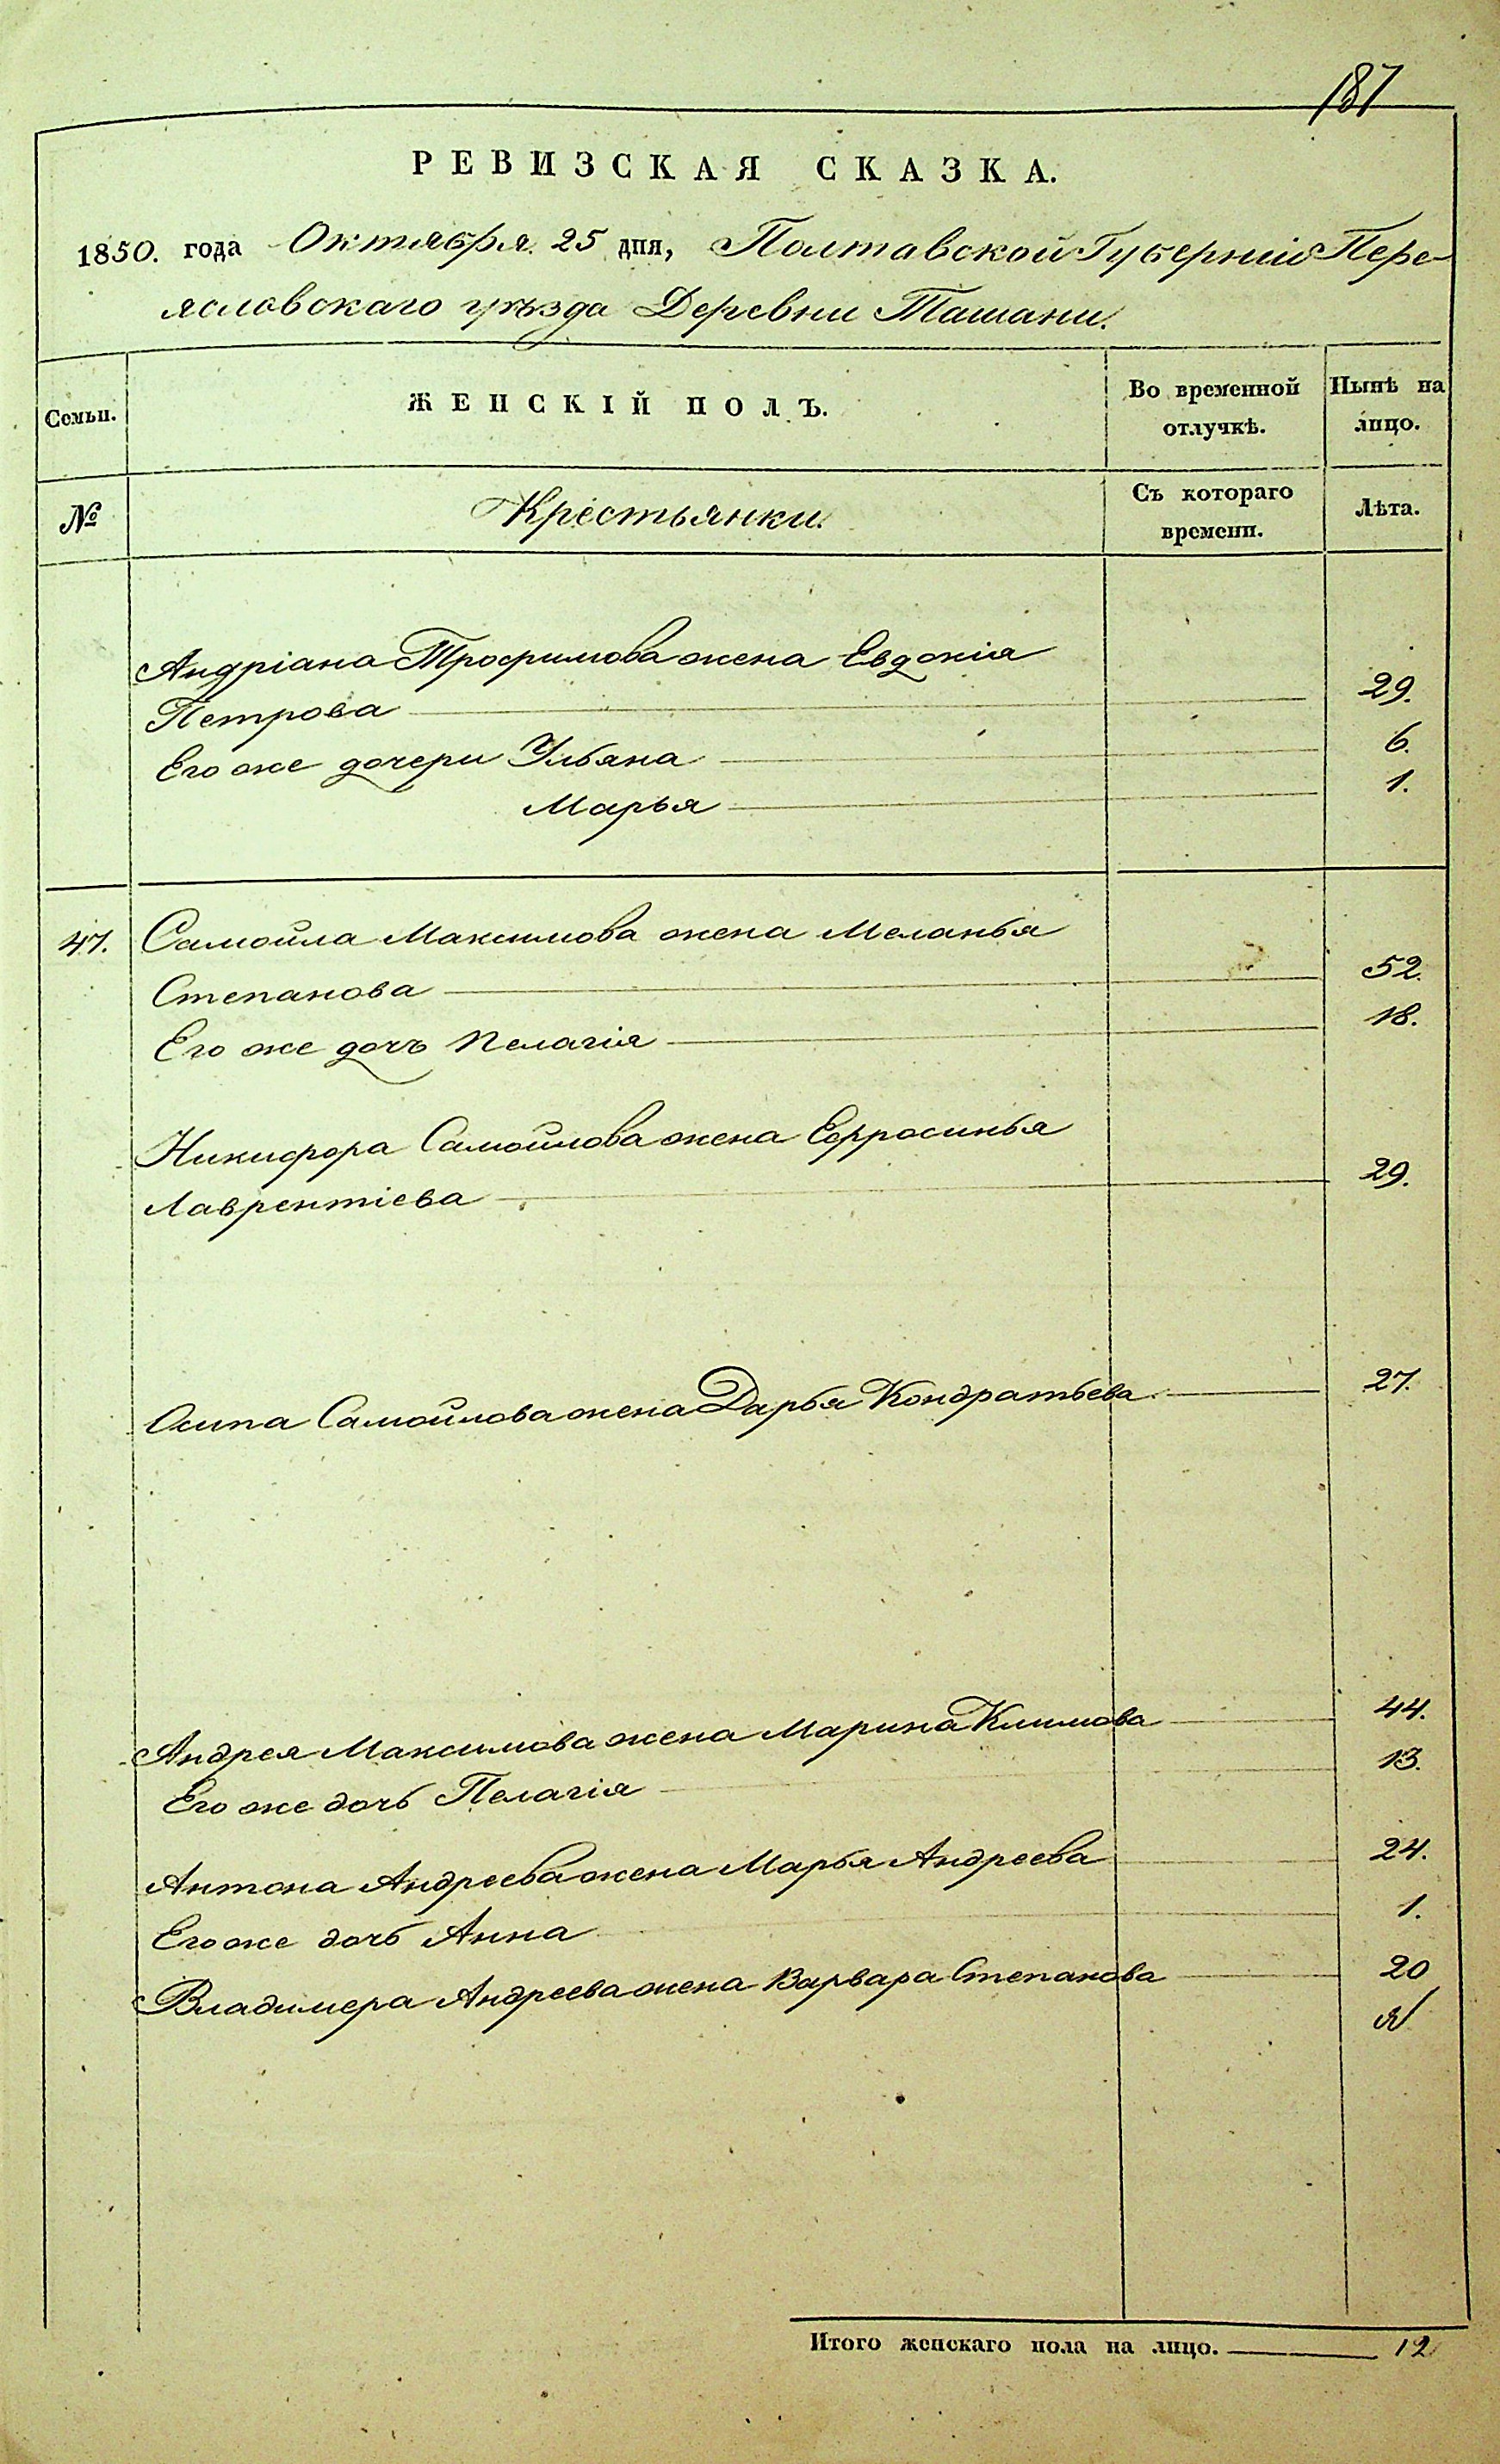 187
РЕВИЗСКАЯ СКАЗКА.
1850. года Октября 25 дня, Полтавской Губерніи Пере-
яславскаго уѣзда Деревни Ташани.
Семьи.
ЖЕНСКІЙ ПОЛЪ.
Во временной отлучкѣ.
Нынѣ на лицо.
№
Крестьянки.
Съ котораго времени.
Лѣта.
Андріана Трофимова жена Евдокія
Петрова 29.
Его же дочери Ульяна 6.
Марья 1.
47. Самойла Максимова жена Меланья
Степанова 52.
Его же дочь Пелагія 18.
Никифора Самойлова жена Ефросинья
Лаврентіева 29.
Осипа Самойлова жена Дарья Кондратьева 27.
Андрея Максимова жена Марина Климова 44.
Его же дочь Пелагія 13.
Антона Андреева жена Марья Андреева 24.
Его же дочь Анна 1.
Владимера Андреева жена Варвара Степанова 20
Итого женскаго пола на лицо. 12